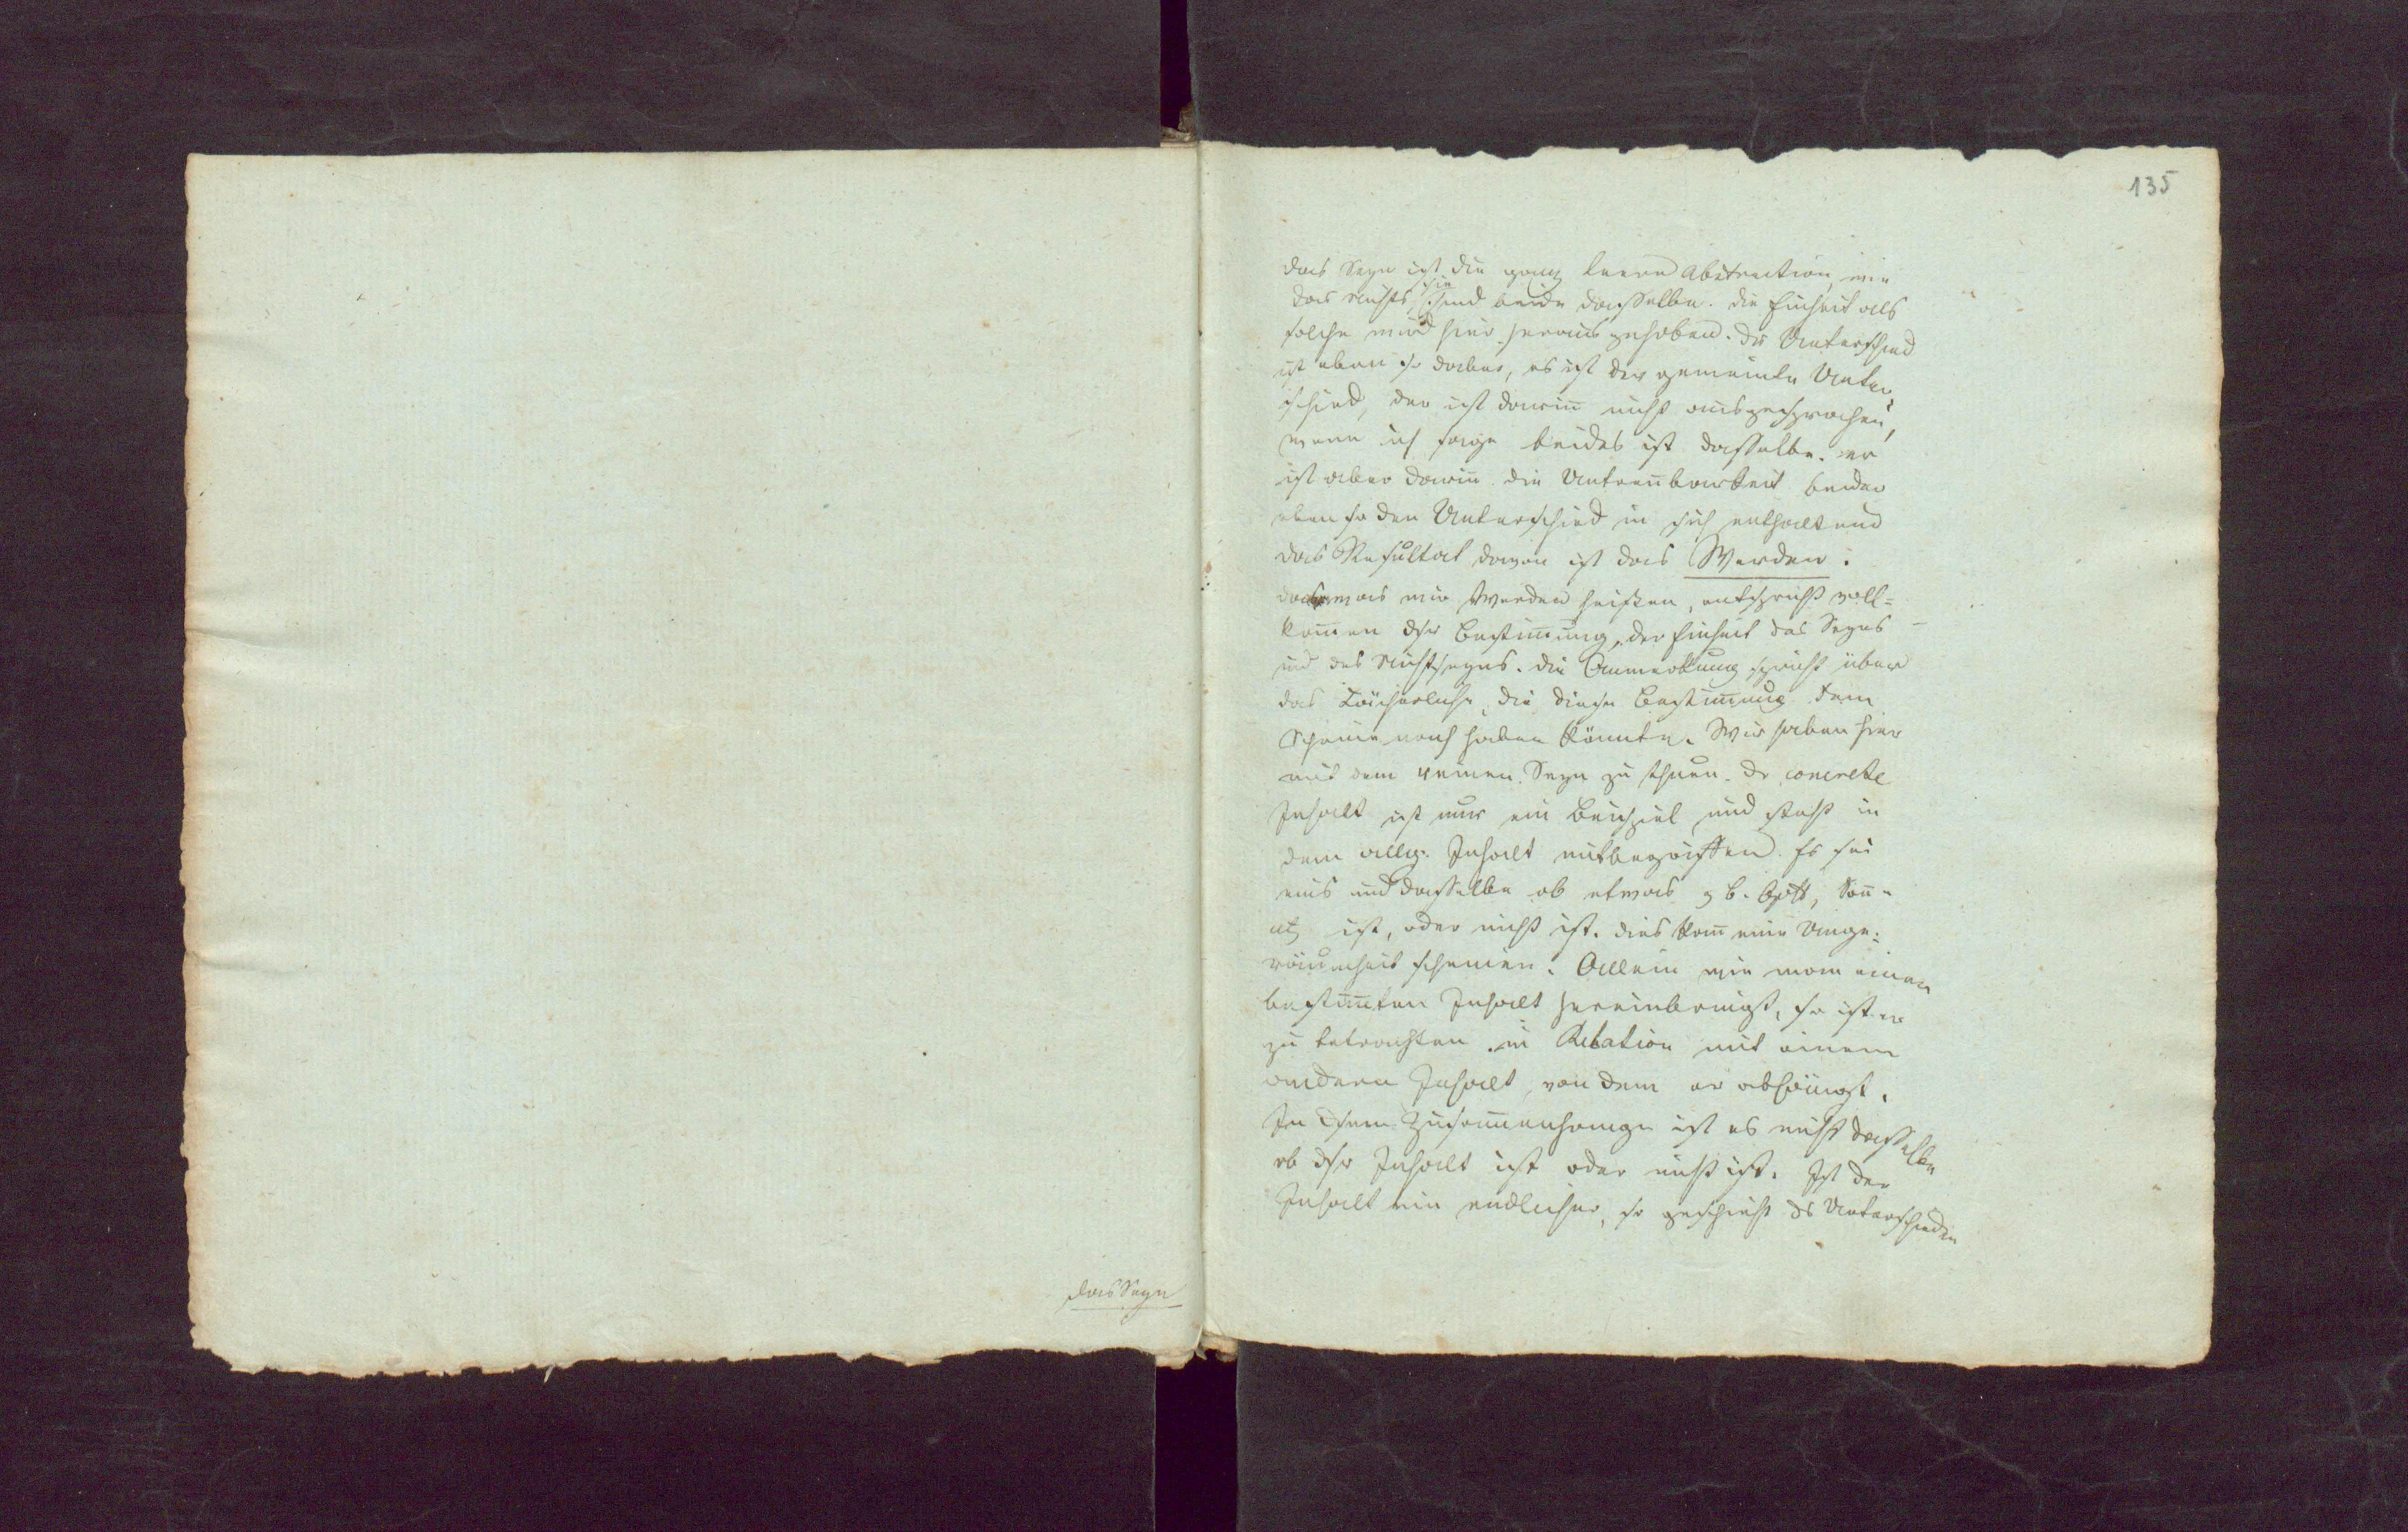 das Seyn
135
das Seyn ist die ganz leere Abstraction, wie
das nichts, sie sind beide dasselbe. die Einheit als
solche wird hier heraus gehoben. der Unterschied
ist eben so dabei, es ist der gemeinte Unter-
schied, der ist darin nicht ausgesprochen,
wenn ich sage beides ist dasselbe. er
ist aber darin. die Untrennbarkeit beider
eben so den Unterschied in sich enthaltend
das Resultat davon ist das Werden.
was wir Werden heißen, entspricht voll=
kom̄en dsr Bestim̄ung, der Einheit des Seyns
und des Nichtseyns. die Anmerkung spricht über
das Lächerliche, die diese Bestim̄ung dem
Scheine nach haben könnte. Wir haben hier
mit dem reinen Seyn zu thuen. Dr concrete
Inhalt ist nur ein Beispiel und steht in
dem allg. Inhalt mitbegriffen. Es sei
eins und dasselbe ob etwas z b. Gott, Son̄e
etc ist, oder nicht ist. dies kan̄ eine Unge=
räumtheit scheinen. Allein wie man einen
bestim̄ten Inhalt hereinbringt, so ist er
zu betrachten in Relation mit einem
andern Inhalt, von dem er abhängt.
In dsem Zusam̄enhange ist es nicht dasselbe
ob dsr Inhalt ist oder nicht ist. Ist der
Inhalt ein endlicher, so geschieht ds Unterscheiden